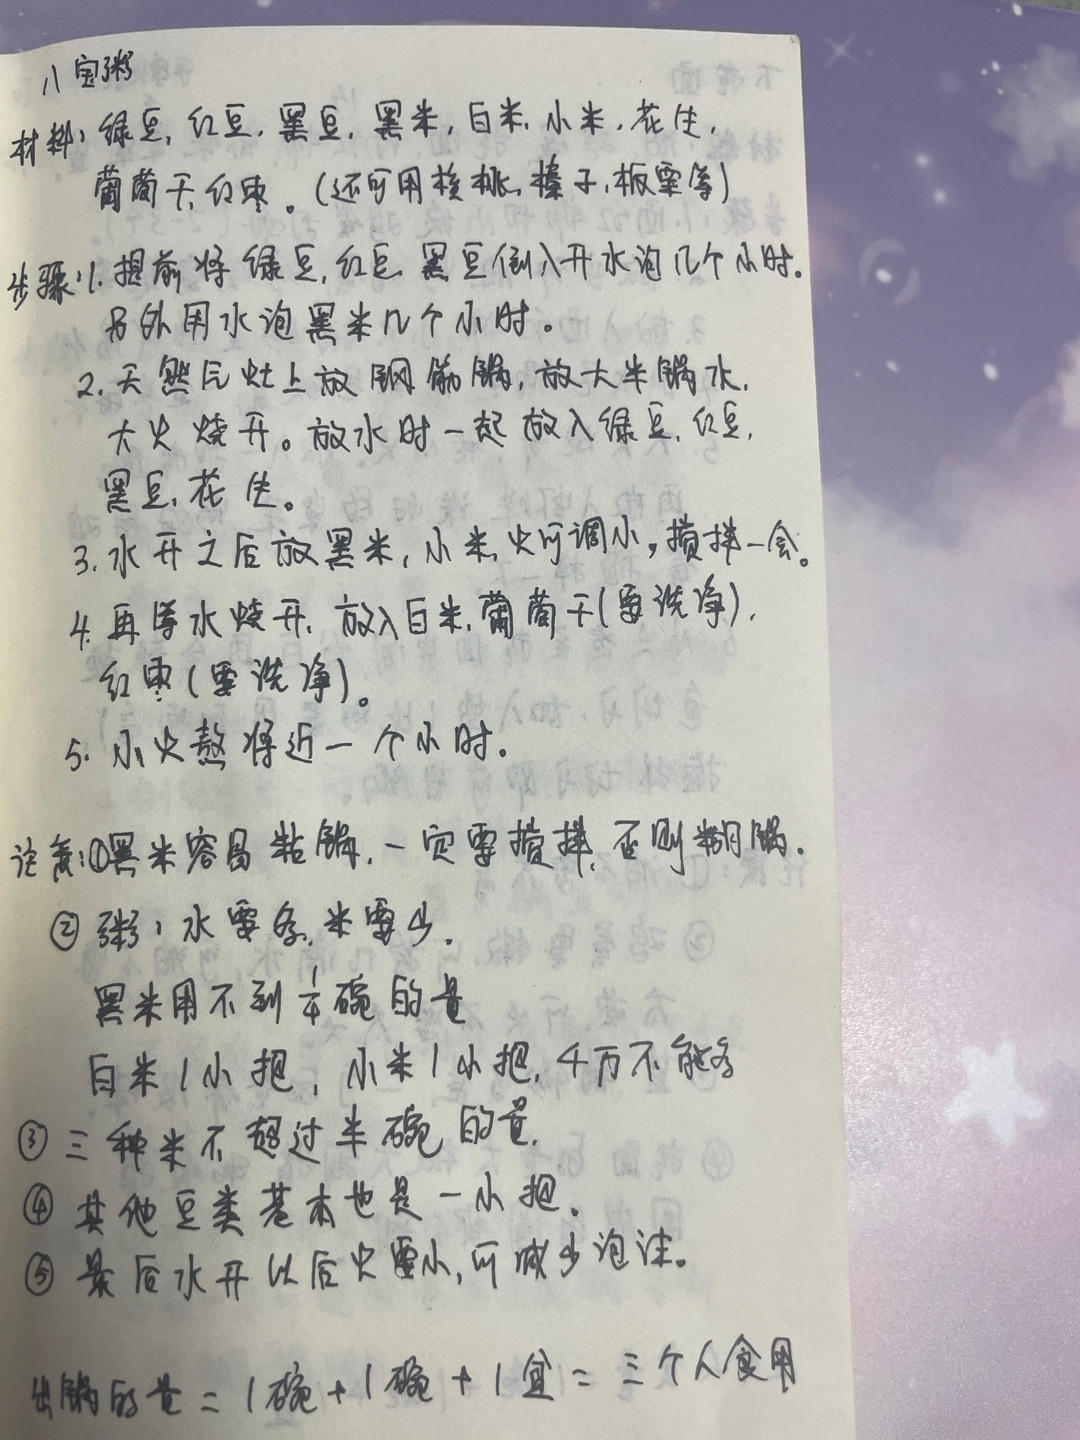 八宝粥
材料: 绿豆, 红豆, 黑豆, 黑米, 白米, 小米, 花生,
葡萄干, 红枣。(还可用核桃, 榛子, 板栗等)
步骤: 1. 提前将绿豆, 红豆, 黑豆倒入开水泡几个小时.
另外用水泡黑米几个小时。
2. 天然气灶上放钢筋锅, 放大半锅水,
大火烧开。放水时一起放入绿豆, 红豆,
黑豆, 花生。
3. 水开之后放黑米, 小米, 火可调小, 搅拌一会。
4. 再等水烧开, 放入白米, 葡萄干(要洗净),
红枣(要洗净)。
5. 小火熬将近一个小时.
注意: ①黑米容易粘锅, 一定要搅拌, 否则糊锅.
② 粥: 水要多, 米要少.
黑米用不到1/4碗的量
白米1小把, 小米1小把, 千万不能多
③ 三种米不超过半碗的量.
④ 其他豆类基本也是一小把.
⑤ 最后水开以后火要小, 可减少泡沫。
出锅的量 = 1碗 + 1碗 + 1 = 三个人食用